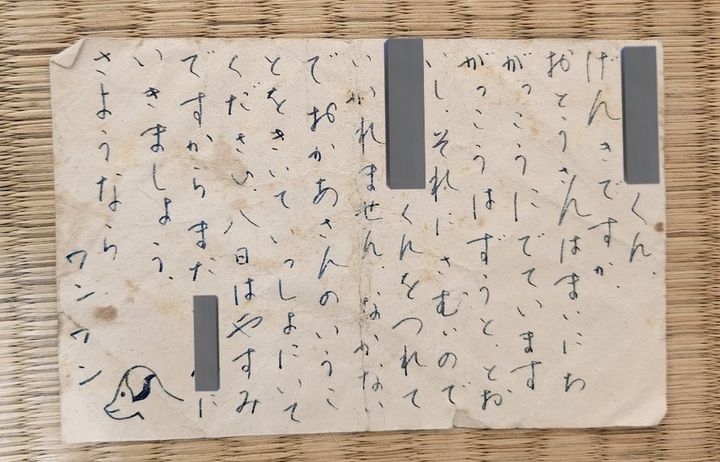 くん、
げんきですか、
おとうさんはまいにち
がっこうにでています
がっこうはずうっと、とお
いし、それにさむいので
くんをつれて
いかれません、なかない
でおかあさんのいうこ
とをきいていっしょにいて
ください、八日はやすみ
ですからまた に
いきましょう、
さようなら
ワンワン